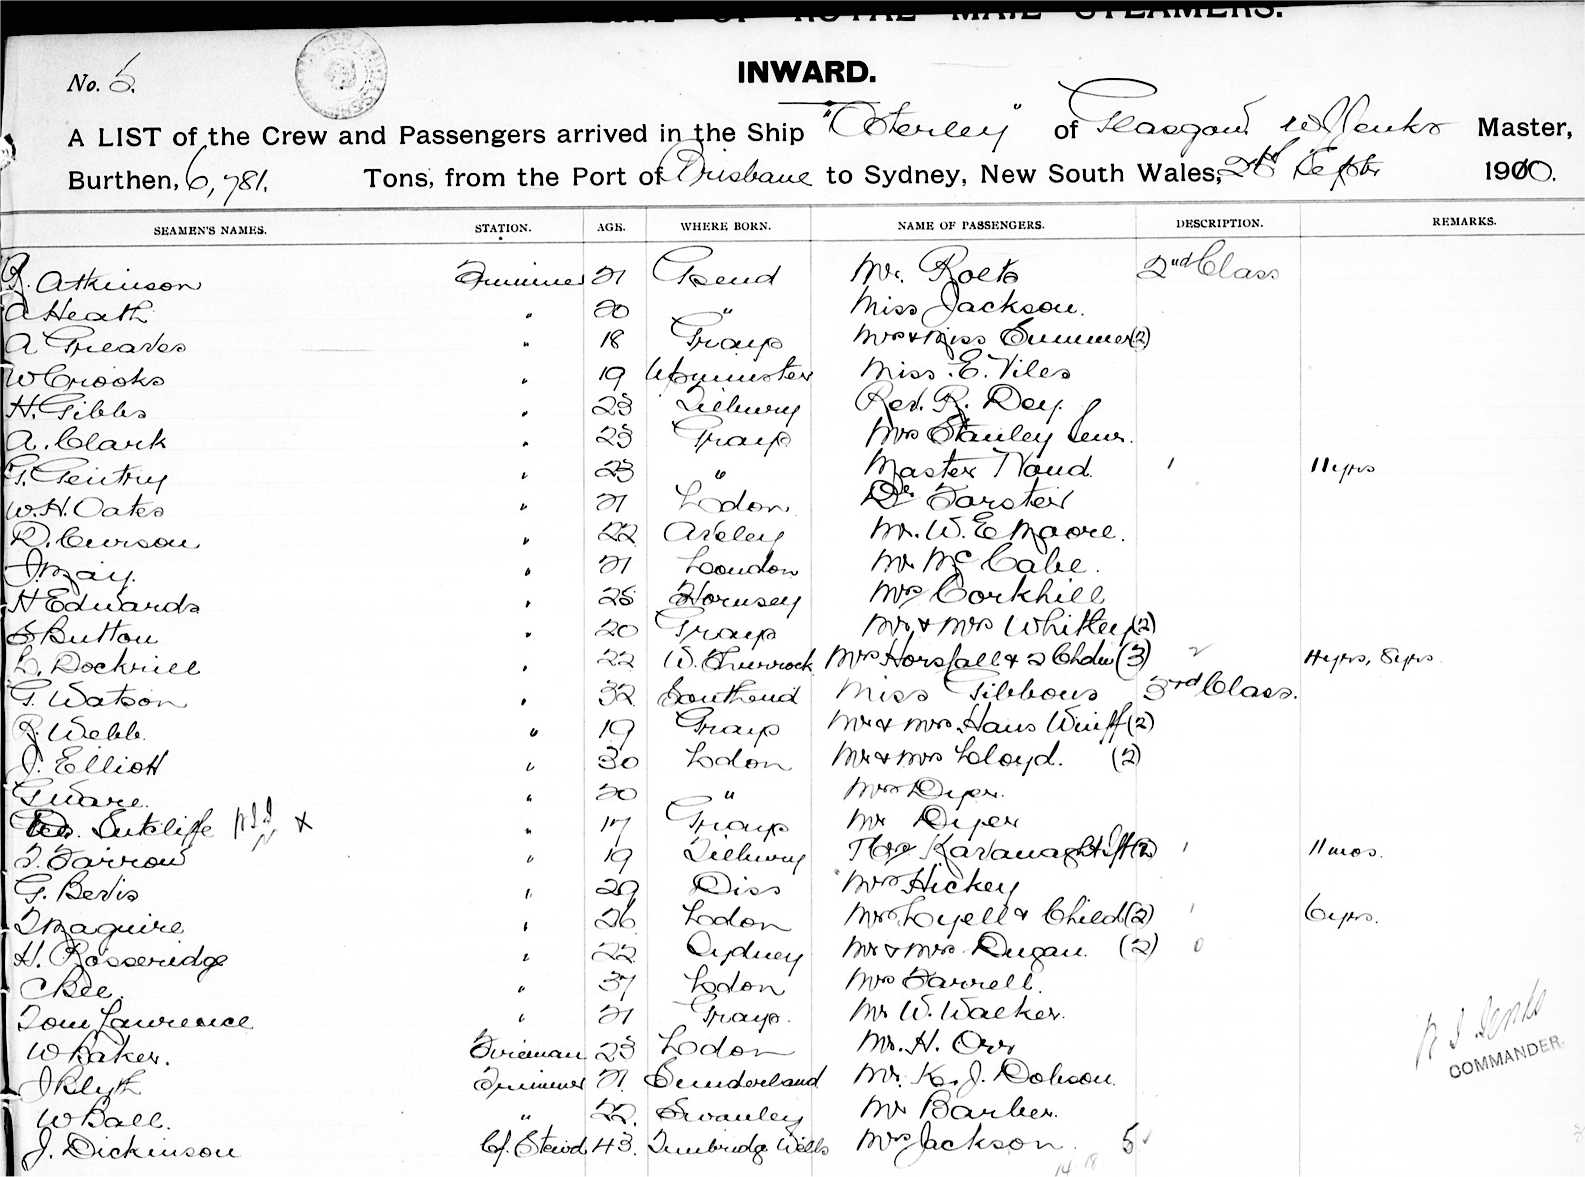 LINE OF ROYAL MAIL STEAMERS.
INWARD.
No. 5.
A LIST of the Crew and Passengers arrived in the Ship "Osterley" of Glasgow Jenks Master,
Burthen, 6,781. Tons, from the Port of Brisbane to Sydney, New South Wales, Septr 1910.
SEAMEN'S NAMES. STATION. AGE. WHERE BORN. NAME OF PASSENGERS. DESCRIPTION. REMARKS.
R. Atkinson Trimmer 21 Mr. Roets 2nd Class
A Heath " 20 " Miss Jackson.
A Greaves " 18 Grays Mrs & Miss Summer (2)
W Crooks " 19 Miss E. Viles
H. Gibbs " 23 Tilbury Rev. R. Dey.
A. Clark " 23 Grays Mrs Stanley Senr.
G. Gentry " 23 " Master 1 11 yrs
W.H. Oates " 21 Lodon Dr Forster
D. Curson " 22 Aveley Mr. W. E Moore.
J. May. " 21 London Mr McCabe.
H Edwards " 28 Hornsey Mrs Corkhill
S Button " 20 Grays Mr & Mrs Whitley (2)
L. Dockrill " 22 W. Thurrock Mrs Horsfall & 2 Chdn (3) 2 4 yrs, 8 yrs.
G. Watson " 32 Southend Miss Gibbons 3rd Class.
R. Webb. " 19 Grays Mr & Mrs Hans (2)
J. Elliott " 30 Lodon Mr & Mrs Lloyd. (2)
G Ware. " 20 " Mrs Dyer.
Sutcliffe x " 17 Grays Mr Dyer
T. Farrow " 19 Tilbury Mrs Kavanagh & Inft (2) 1 11 mos.
G. Bevis " 29 Diss Mrs Hickey
T Maguire " 26 Lodon Mrs Lyell & Child (2) 1 6 yrs.
H. Rosseridge " 22 Sydney Mr & Mrs Dugan. (2)
C Bee. " 37 Lodon Mrs Farrell.
Tom Lawrence " 21 Grays. Mr W. Walker.
W Baker. Fireman 23 Lodon Mr. H. Orr
J Blyth Trimmer 21 Sunderland Mr. K. J. Dobson.
W Ball. " 22. Swanley Mr Barber.
J. Dickinson Cf. Stewd 43. Tunbridge Wells Mrs Jackson. 5
Jenks
COMMANDER.
14 18